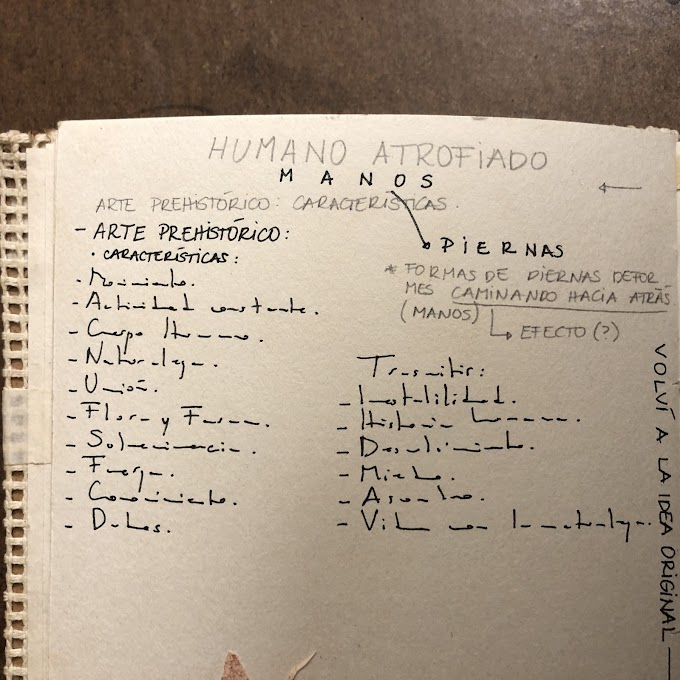 HUMANO ATROFIADO
MANOS
ARTE PREHISTÓRICO: CARACTERÍSTICAS.
- ARTE PREHISTÓRICO:
• CARACTERÍSTICAS:
- Movimiento.
- Actividad constante.
- Cuerpo Humano.
- Naturaleza.
- Unión.
- Flora y Fauna.
- Supervivencia.
- Fuerza.
- Conocimiento.
- Dudas.
PIERNAS
* FORMAS DE PIERNAS DEFOR-
MES CAMINANDO HACIA ATRÁS
(MANOS)
EFECTO (?)
Trasmitir:
- Inestabilidad.
- Historia humana.
- Descubrimiento.
- Miedo.
- Asombro.
- Vida con la naturaleza.
VOLVÍ A LA IDEA ORIGINAL